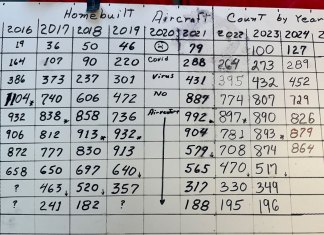 Homebuilt Aircraft Count by Year
2016 2017 2018 2019 2020 2021 2022 2023 2024
19 36 50 46 79 100 127
164 107 90 220 Covid 288 264 273 289
386 373 237 301 Virus 431 395 432 452
1104* 740 606 472 NO 887 774 807 729
932 838* 858 736 Airventure 992* 897* 890 826
906 812 913* 932* 904 781 893* 879
872 777 830 913 579 708 874 864
658 650 697 640 565 470 517
? 463 520 357 317 330 349
? 241 182 ? 188 195 196